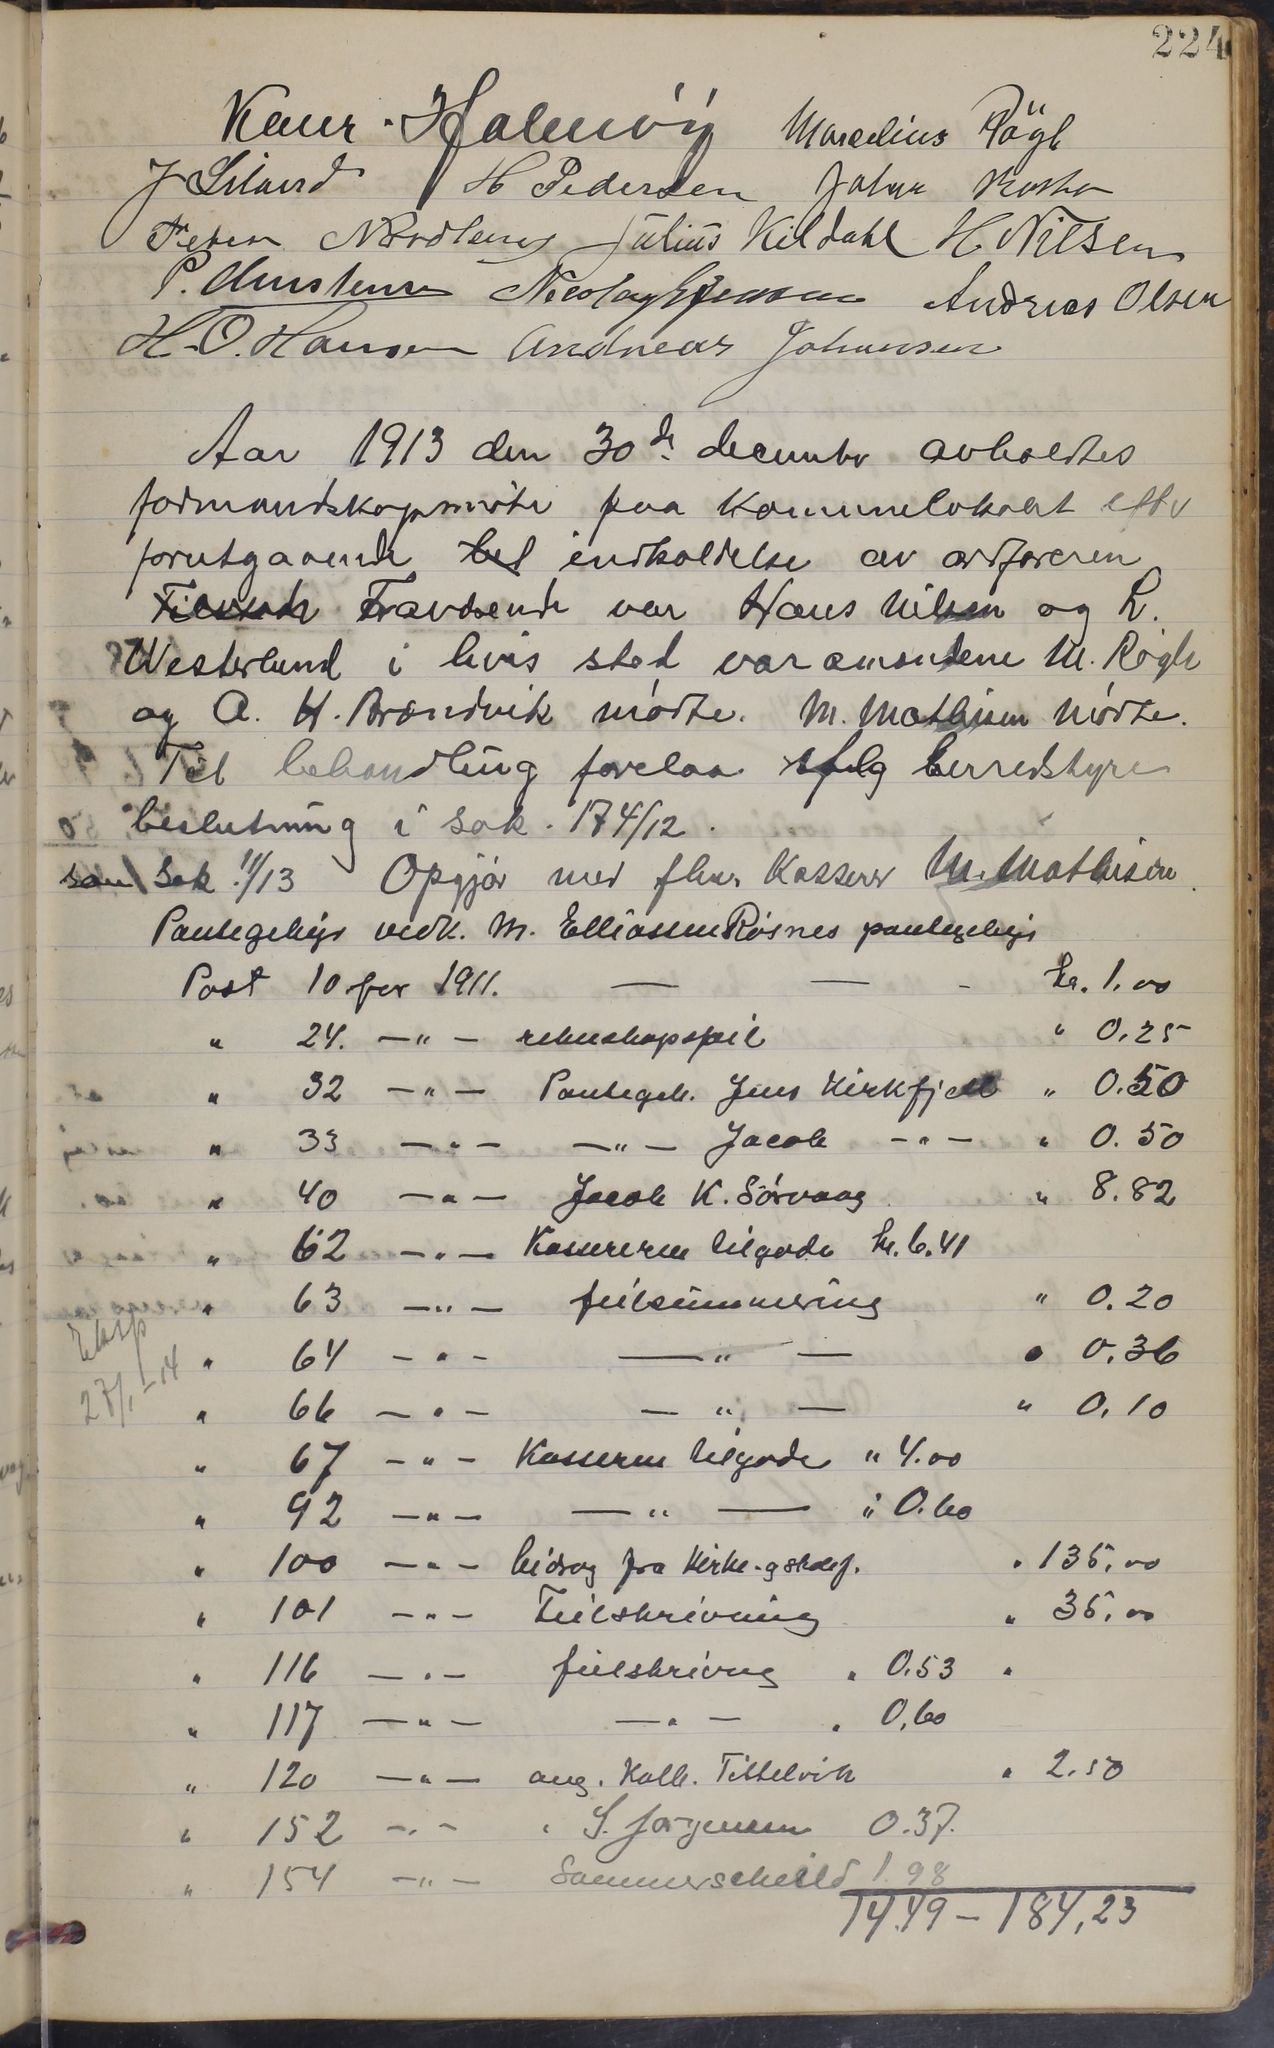 224
Kaur. Halmöy Marelius Rögl
J Siland H Pedersen Johan
Peder Nordberg Julius Kildahl H Nilsen
P. Christensen Nicolay Andreas Olsen
H. O. Hansen Andreas Johansen
Aar 1913 den 30de december avholdtes
formandskapsmøte paa Kommunelokalet efter
forutgaaende bel indkaldelse av ordføreren
Fraværende var Hans Nilsen og L.
Westerlund i hvis sted varamændene M. Røgle
og A. H. Brændvik mødte. M. Mathisen mødte.
Til behandling forelaa ifølg herredstyre
beslutning i sak. 174/12.
som Sak. 11/13 Opgjør med fhv. Kasserer M. Mathisen.
Pantegebyr vedk. M. Elliassen Røsnes pantegebyr
Post 10 for 1911. — — - kr. 1.00
" 24. —"— rekneskapspeil " 0.25
" 32 —"— Pantegeb. Jens Kirkfjell " 0.50
" 33 —"— —"— Jacob —"— " 0.50
" 40 —"— Jacob K. Sørvaag " 8.82
" 62 —"— Kassereren tilgode kr. 6.41
" 63 —"— feilsummering " 0.20
Eksp
" 64 —"— —"— " 0.36
27/1-14
" 66 —"— —"— " 0.10
" 67 —"— Kassereren tilgode " 4.00
" 92 —"— —"— " 0.60
" 100 —"— bidrag fra Kirke-g skolef. " 135.00
" 101 —"— Feilskrivning " 35.00
" 116 —"— feilskrivng " 0.53 "
" 117 —"— —"— " 0.60
" 120 —"— ang. Kath. Tittelvik " 2.50
" 152 —"— " S. Jørgensen 0.37.
" 154 —"— Sommerschield 1.98
14.49 — 184,23